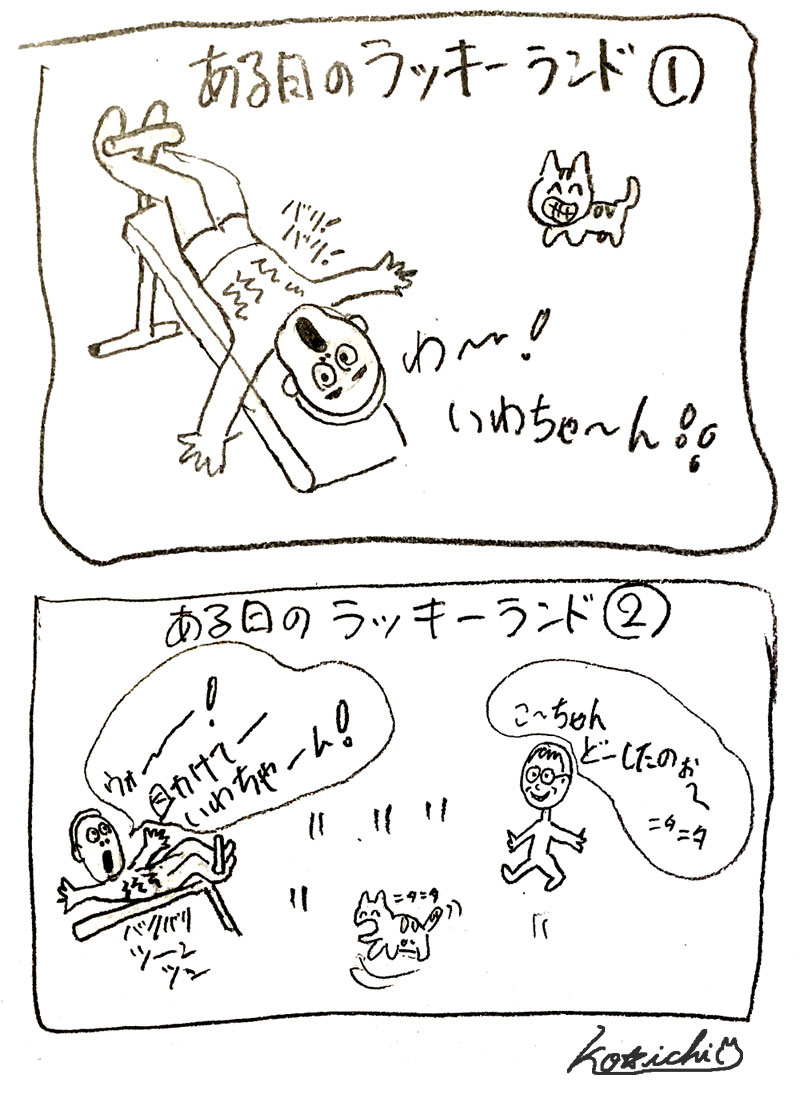 ある日のラッキーランド①
バリ!
バリ!
わ〜〜!
いわちゃ〜ん!!
ある日のラッキーランド②
ウォ〜ー!
助けてー
いわちゃーん!
こ〜ちゃん
どーしたのぉ〜
ニタニタ
ニタニタ
バリバリ
ツー
ツー
Ko☆ichi